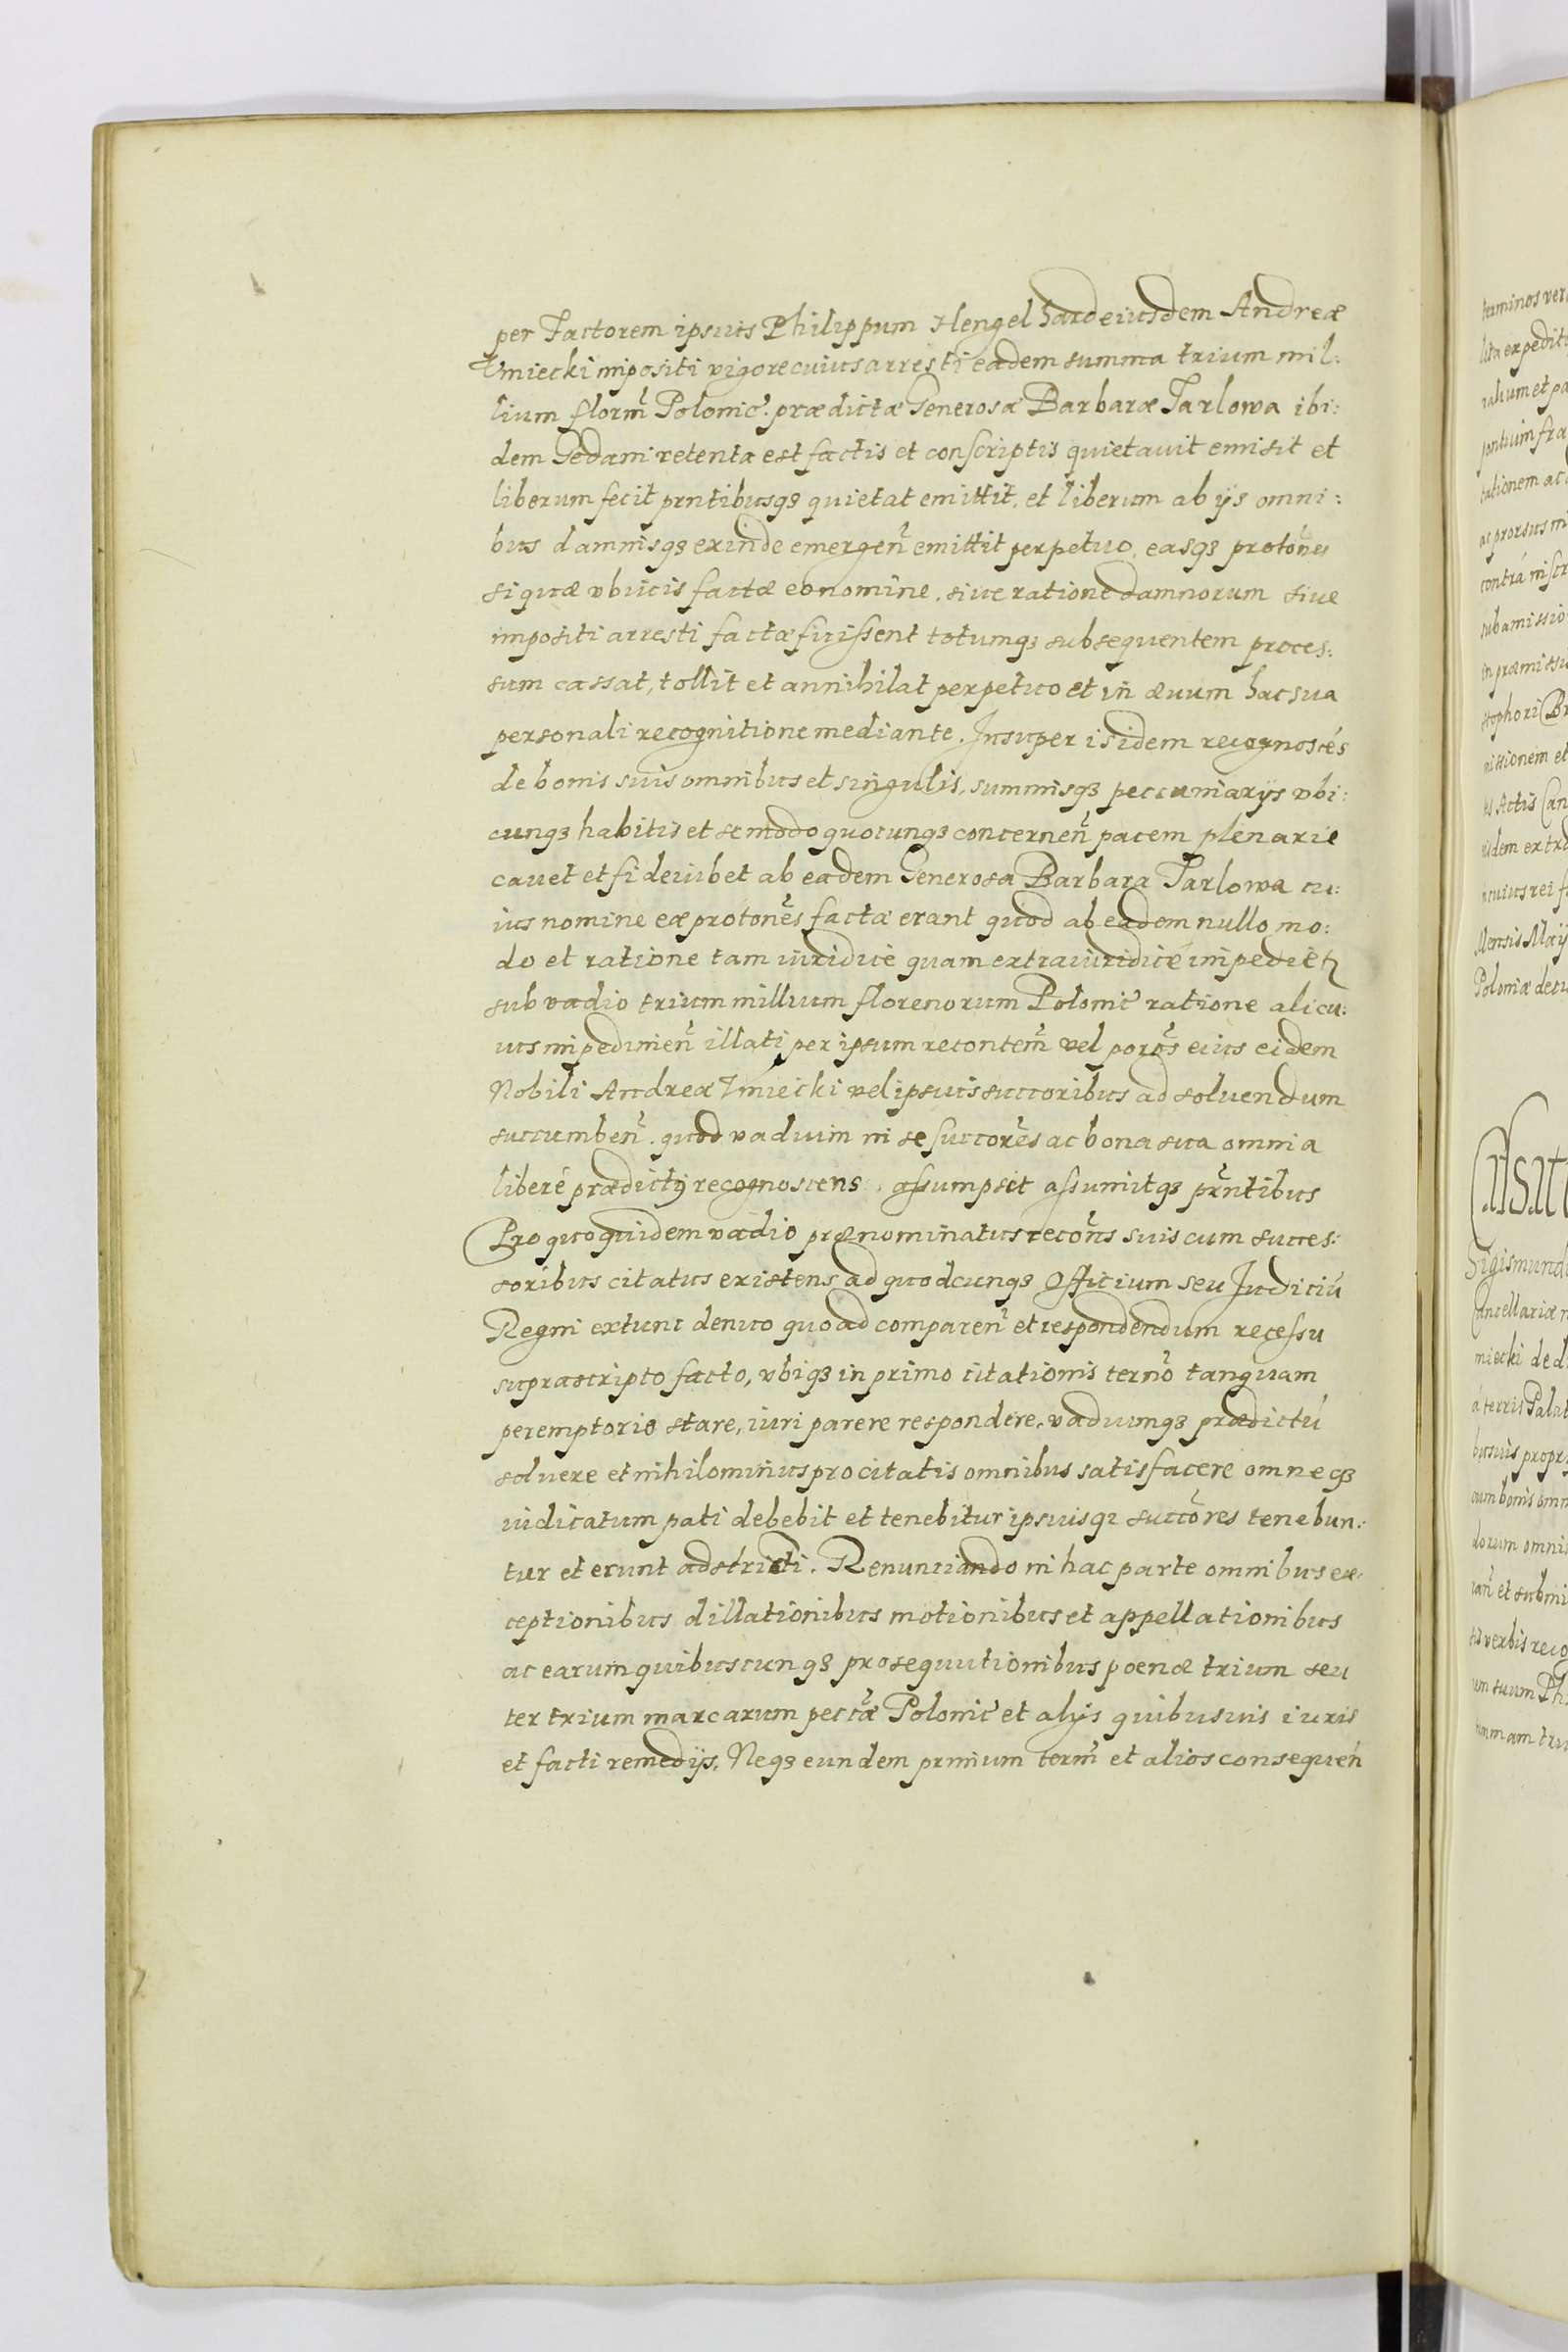 per Factorem ipsius Philippum Hengel hardeiusdem Andreæ
Vmiecki impositi vigore cuius arresti eadem summa trium mil:
lium florm̃ Polonic̃. prædictæ Generosæ Barbaræ Tarlowa ibi:
dem Gedani retenta est factis et conscriptis quietavit emisit et
liberum fecit prntibusqꝫ quietat emittit, et liberum ab ijs omni:
bus damnisqꝫ exinde emergeñ emittit perpetuo, easqꝫ protoñes
si quæ vbiuis factæ eo nomine, siue ratione damnorum siue
impositi arresti factæ fuissent totumqꝫ subsequentem proces:
sum cassat, tollit et annihilat perpetuo et in æuum hac sua
personali recognitione mediante. Insuper is idem recognoscẽs
de bonis suis omnibus et singulis, summisqꝫ peccuniarijs vbi:
cunqꝫ habitis et se modo quocunqꝫ concerneñ pacem plenarie
cauet et fideiubet ab eadem Generosa Barbara Tarlowa cu:
ius nomine eæ protoñes factæ erant quod ab eadem nullo mo:
do et ratione tam iuridicè quam extraiuridicè impedietꝫ
sub vadio trium millium florenorum Polonic̃ ratione alicu:
ius impedimeñ illati per ipsum recontem̃ vel poros̃ eius eidem
Nobili Andreæ Vmiecki vel ipsius succoribus ad soluendum
succumbeñ. quod vadium in se succores̃ ac bona sua omnia
liberè prædictꝰ recognoscens, assumpsit assumitqꝫ pr̃ntibus
Pro quo quidem vadio prænominatus recoñs suis cum succes:
soribus citatus existens ad quodcunqꝫ Officium seu Judiciũ
Regni extunc denuo quoad compareñ et respondendum recessu
suprascripto facto, vbiqꝫ in primo citationis terno̊ tanquam
peremptorio stare, iuri parere respondere, vadiumqꝫ prædictũ
soluere et nihilominus pro citatis omnibus satisfacere omneqꝫ
iudicatum pati debebit et tenebitur ipsiusqꝫ succõres tenebun:
tur et erunt adstricti. Renunciando in hac parte omnibus ex:
ceptionibus dillationibus motionibus et appellationibus
ac earum quibuscunqꝫ prosequutionibus poenæ trium seu
ter trium marcarum peccæ̃ Polonic̃ et alijs quibusuis iuris
et facti remedijs. Neqꝫ eundem primum term̃ et alios consequeñ